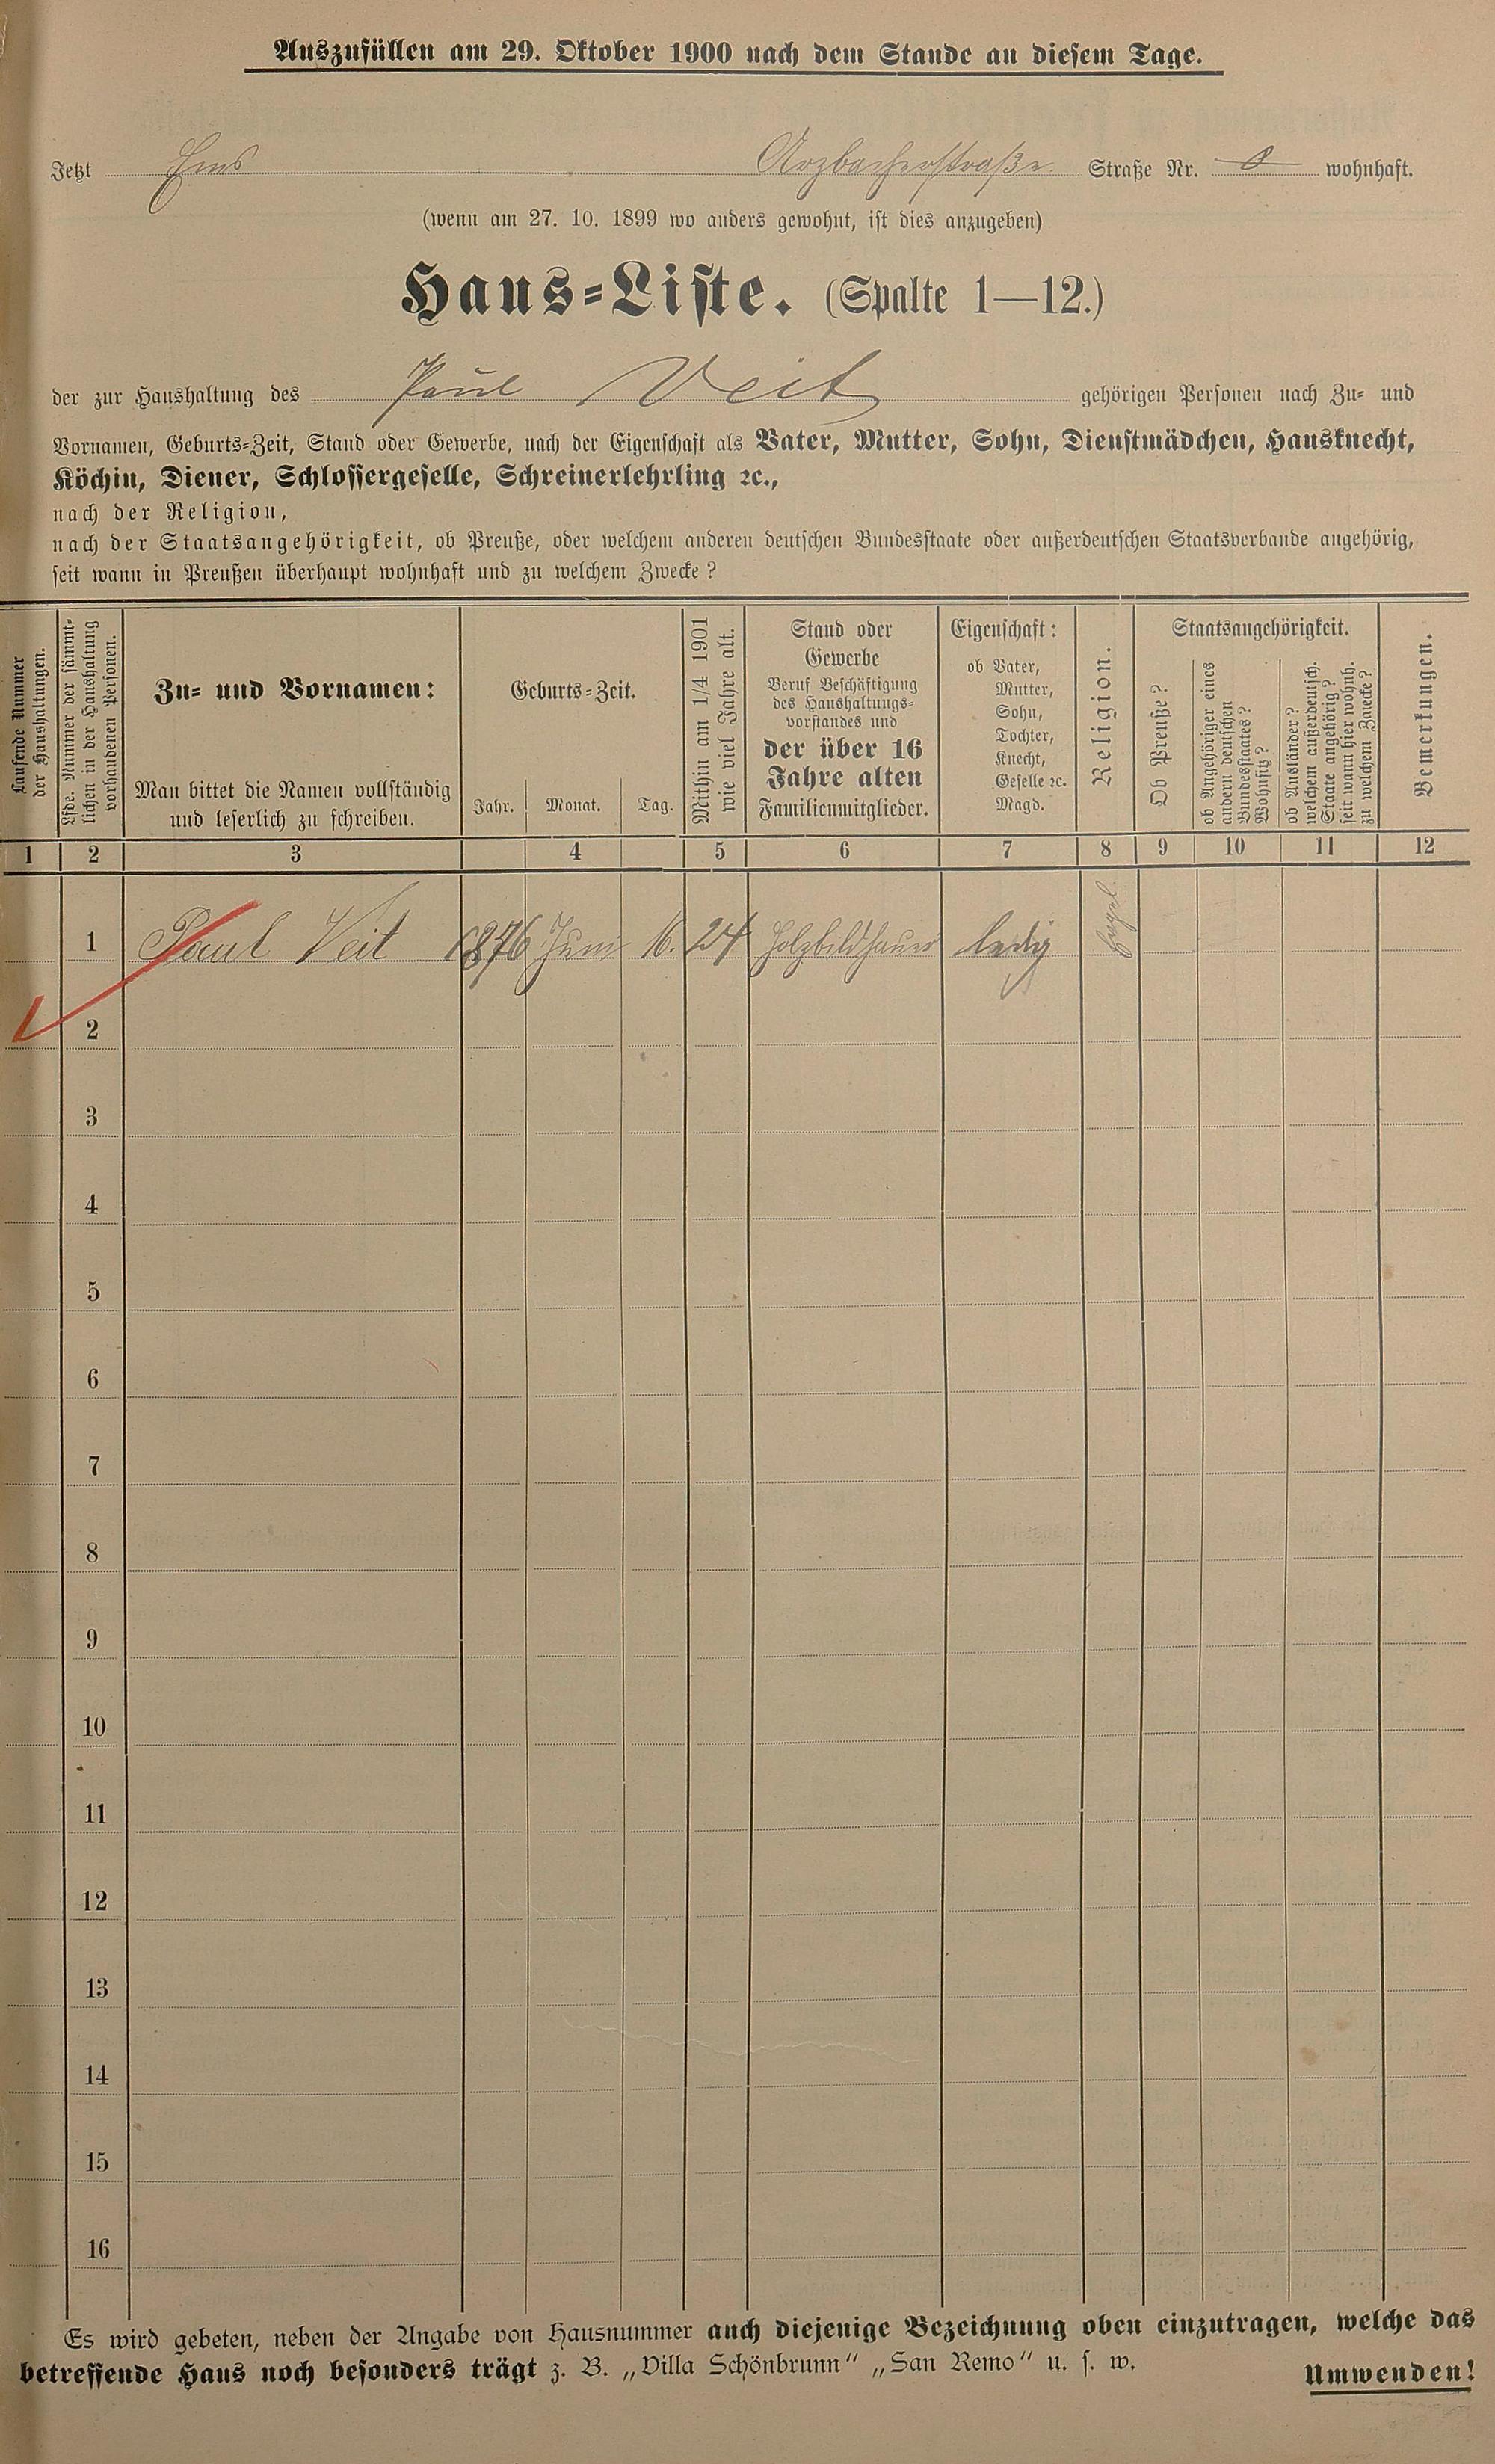 Auszufüllen am 29. Oktober 1900 nach dem Stande an diesem Tage.
Jetzt Ems Arzbacherstraße Straße Nr. wohnhaft.
(wenn am 27. 10. 1899 wo anders gewohnt, ist dies anzugeben)
Haus-Liste. (Spalte 1—12.)
der zur Haushaltung des Paul Veit gehörigen Personen nach Zu- und
Vornamen, Geburts-Zeit, Stand oder Gewerbe, nach der Eigenschaft als Vater, Mutter, Sohn, Dienstmädchen, Hausknecht,
Köchin, Diener, Schlossergeselle, Schreinerlehrling ꝛc.,
nach der Religion,
nach der Staatsangehörigkeit, ob Preuße, oder welchem anderen deutschen Bundesstaate oder außerdeutschen Staatsverbande angehörig,
seit wann in Preußen überhaupt wohnhaft und zu welchem Zwecke?
Laufende Nummer
der Haushaltungen.
Lfde. Nummer der sämmt-
lichen in der Haushaltung
vorhandenen Personen.
Zu- und Vornamen:
Man bittet die Namen vollständig
und leserlich zu schreiben.
Geburts-Zeit.
Jahr. Monat. Tag.
Mithin am 1/4 1901
wie viel Jahre alt.
Stand oder
Gewerbe
Beruf Beschäftigung
des Haushaltungs-
vorstandes und
der über 16
Jahre alten
Familienmitglieder.
Eigenschaft:
ob Vater,
Mutter,
Sohn,
Tochter,
Knecht,
Geselle ꝛc.
Magd.
Religion.
Staatsangehörigkeit.
Ob Preuße?
ob Angehöriger eines
andern deutschen
Bundesstaates?
Wohnsitz?
ob Ausländer?
welchem außerdeutsch.
Staate angehörig?
seit wann hier wohnh.
zu welchem Zwecke?
Bemerkungen.
1 2 3 4 5 6 7 8 9 10 11 12
1 Paul Veit 1876 Juni 16. 24 Holzbildhauer ledig
2
3
4
5
6
7
8
9
10
11
12
13
14
15
16
Es wird gebeten, neben der Angabe von Hausnummer auch diejenige Bezeichnung oben einzutragen, welche das
betreffende Haus noch besonders trägt z. B. „Villa Schönbrunn“ „San Remo“ u. s. w.
Umwenden!